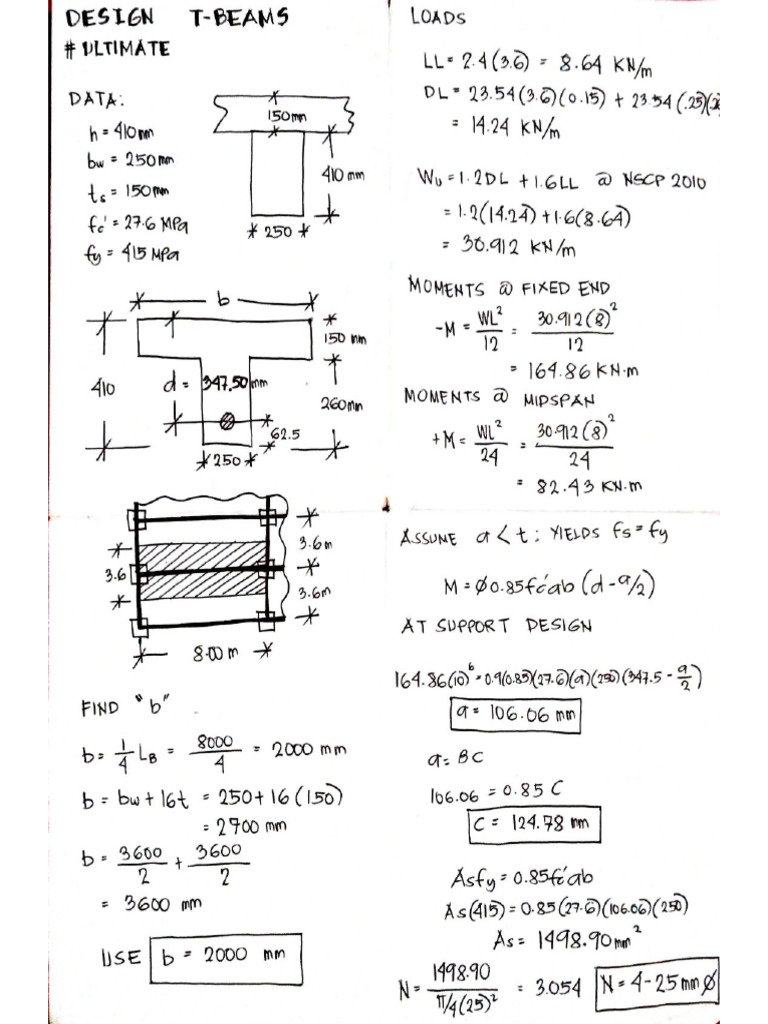 DESIGN T-BEAMS
# ULTIMATE
DATA:
h = 410mm
bw = 250mm
ts = 150mm
fc' = 27.6 MPa
fy = 415 MPa
150mm
410 mm
250
b
150 mm
410
d = 347.50 mm
260mm
62.5
250
3.6m
3.6
3.6m
8.00 m
FIND "b"
b = 1/4 LB = 8000/4 = 2000 mm
b = bw + 16t = 250 + 16 (150)
= 2700 mm
b = 3600/2 + 3600/2
= 3600 mm
USE b = 2000 mm
LOADS
LL = 2.4 (3.6) = 8.64 KN/m
DL = 23.54 (3.6)(0.15) + 23.54 (.25)(
= 14.24 KN/m
Wu = 1.2DL + 1.6LL @ NSCP 2010
= 1.2(14.24) + 1.6(8.64)
= 30.912 KN/m
MOMENTS @ FIXED END
-M = WL²/12 = 30.912(8)²/12
= 164.86 KN·m
MOMENTS @ MIDSPAN
+M = WL²/24 = 30.912(8)²/24
= 82.43 KN·m
ASSUME a < t : YIELDS fs = fy
M = Ø0.85fc'ab (d - a/2)
AT SUPPORT DESIGN
164.86(10)⁶ = 0.9(0.85)(27.6)(a)(250)(347.5 - a/2)
a = 106.06 mm
a = BC
106.06 = 0.85 C
C = 124.78 mm
Asfy = 0.85fc'ab
As(415) = 0.85(27.6)(106.06)(250)
As = 1498.90mm²
N = 1498.90/π/4(25)² = 3.054 N = 4-25mmØ